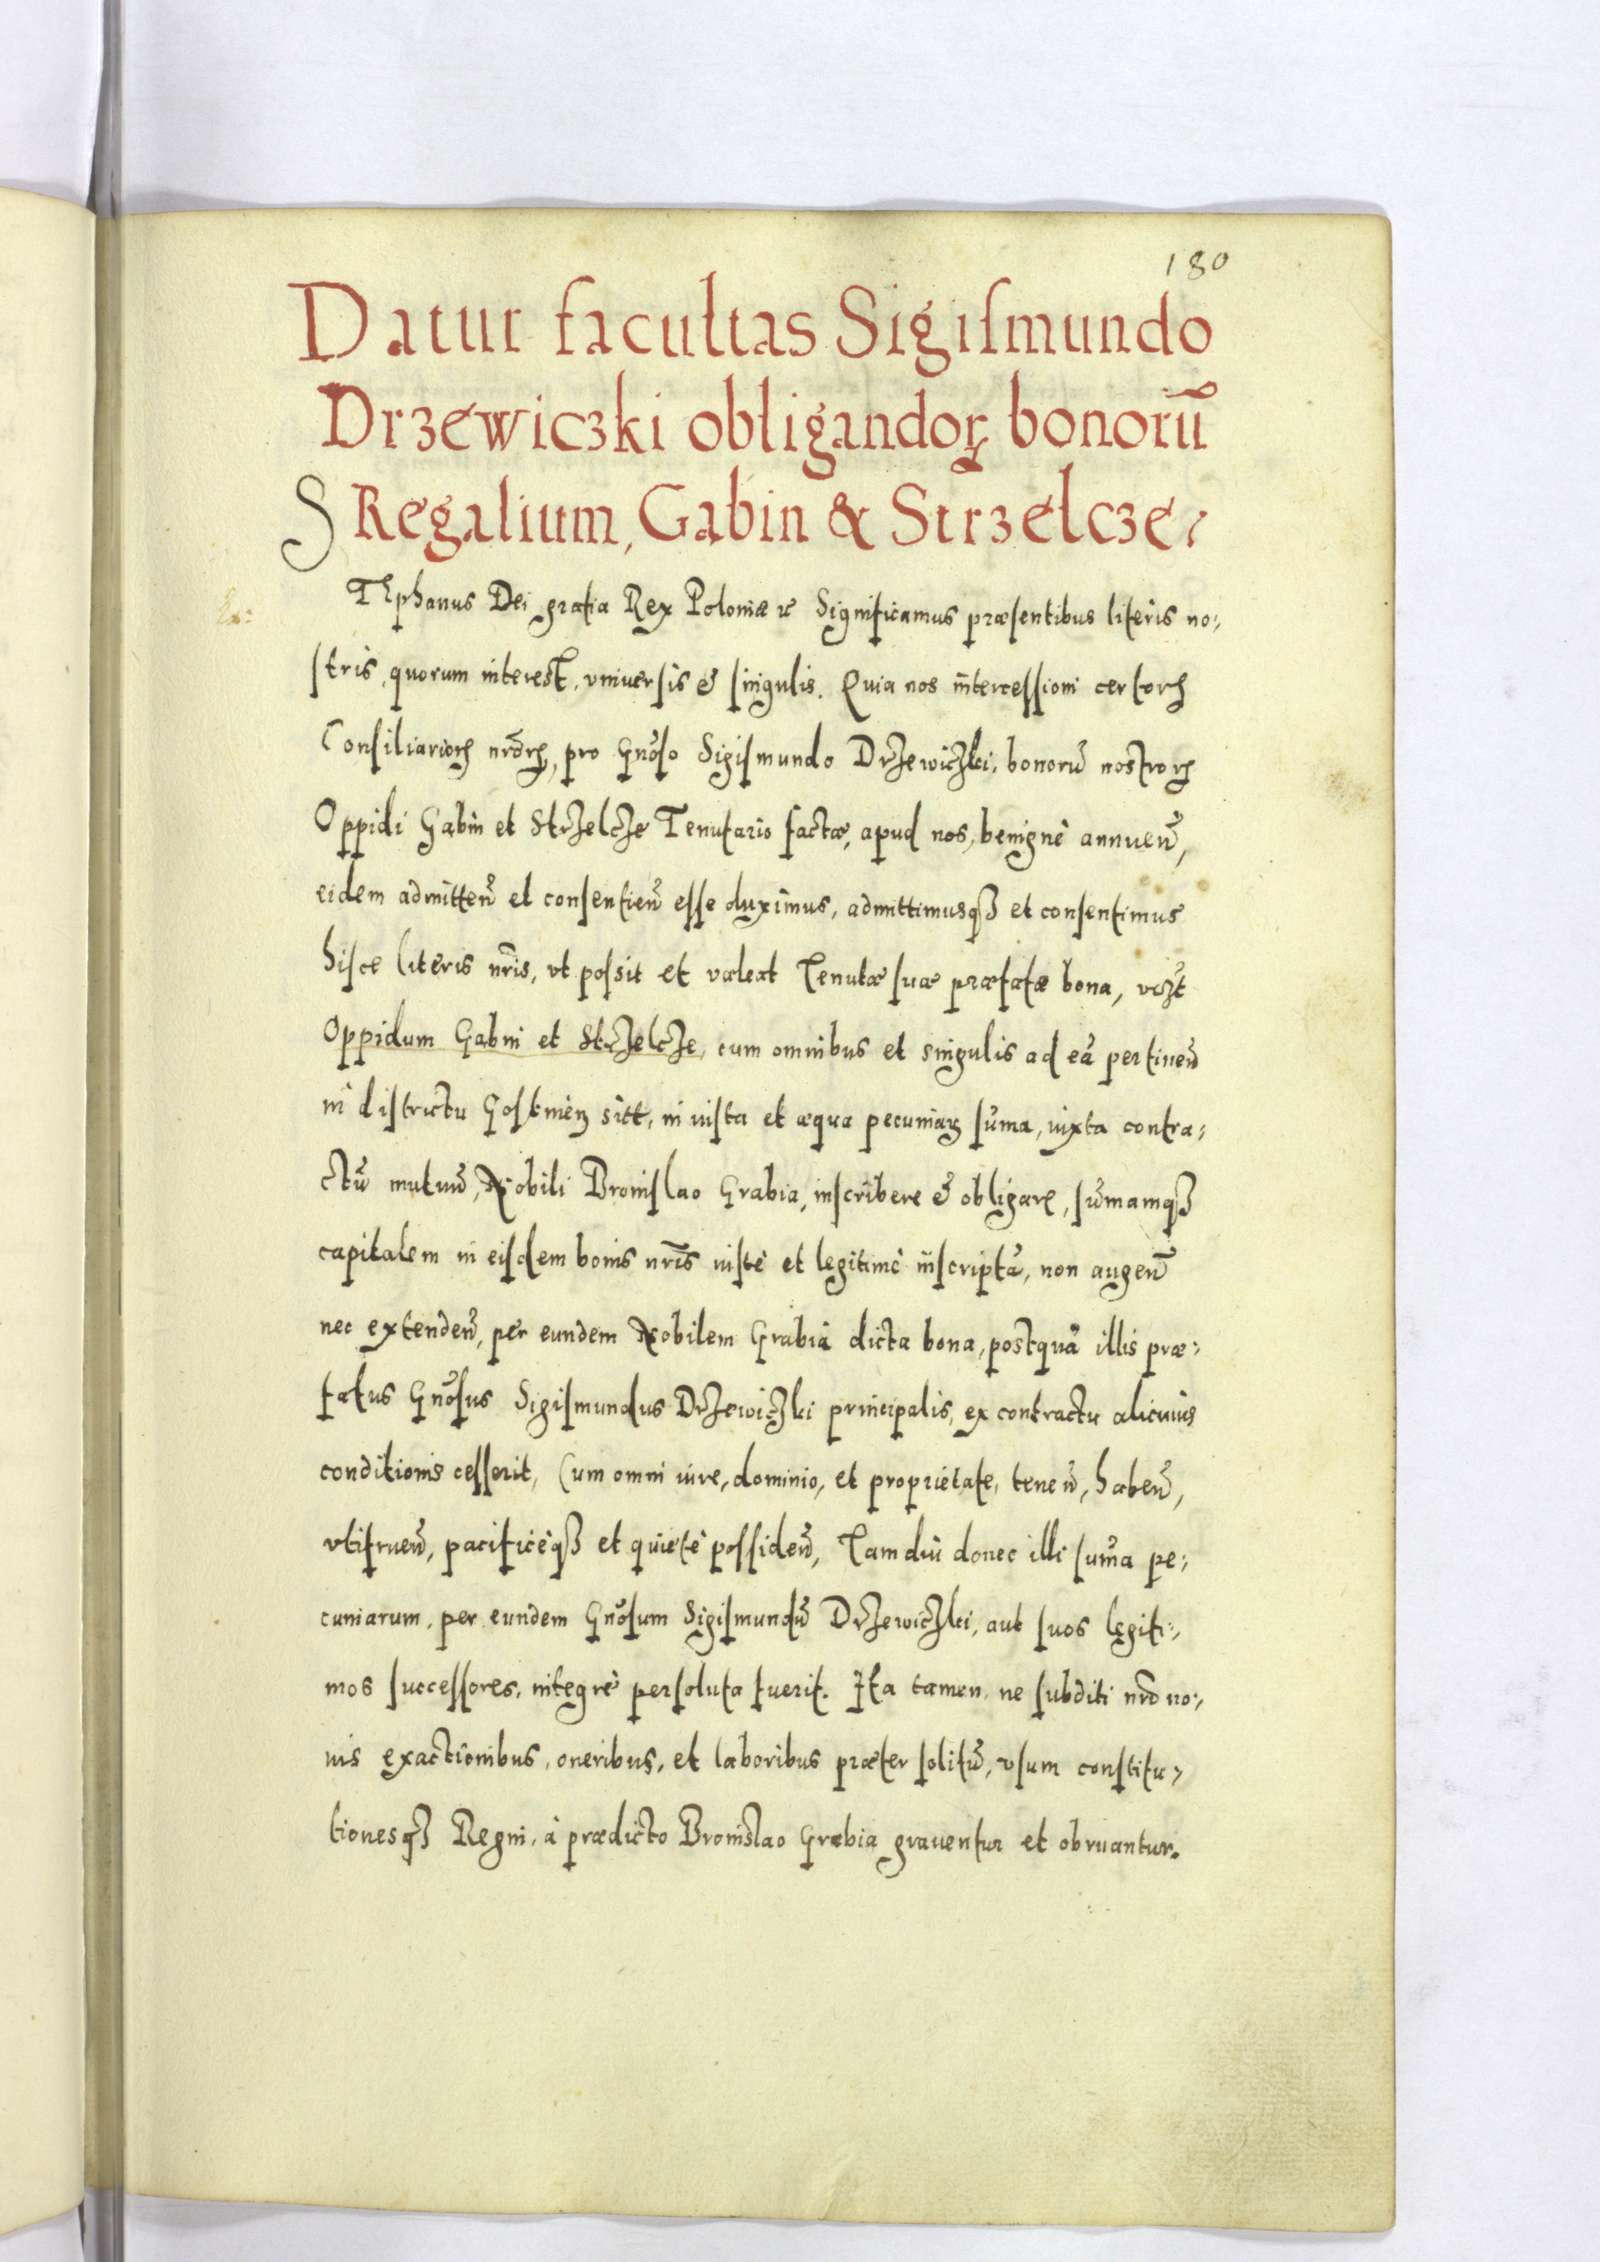 180
Datur facultas Sigiſmundo
Drzewiczki obligandoꝝ bonorū
Regalium, Gabin & Strzelcze:
STEphanus Dei gratia Rex Poloniæ ꝛc Significamus præſentibus literis no:
ſtris, quorum interest, vniuerſis & ſingulis. Quia nos intercessioni certorꝝ
Conſiliariorꝝ nrōrꝝ, pro Gnōso Sigiſmundo Drzewiczki, bonorū nostrorꝝ
Oppidi Gabin et Strzelcze Tenutario factæ, apud nos, benignè annueñ,
eidem admitteñ et conſentieñ eſſe duximus, admittimusqꝫ et conſentimus
hiſce literis nr̄is, vt poſsit et valeat Tenutæ ſuæ præfatæ bona, vꝫt
Oppidum Gabin et Strzelcze, cum omnibus et singulis ad eā pertineñ
in diſtrictu Goſtinień sitt, in iusta et æqua pecuniaꝝ sūma, iuxta contra:
ctū mutuū, Nobili Broniſlao Grabia, inſcribere & obligare, ſūmamqꝫ
capitalem in eiſdem bonis nr̄is iustè et legitimè inſcriptā, non augeñ
nec extendeñ, per eundem Nobilem Grabiā dicta bona, postquā illis præ:
fatus Gnōſus Sigiſmundus Drzewiczki principalis, ex contractu alicuius
conditionis ceſſerit, Cum omni iure, dominio, et proprietate, teneñ, habeñ,
vtifrueñ, pacificèqꝫ et quietè poſſideñ, Tam diu donec illi ſum̄a pe:
cuniarum, per eundem Gnōſum Sigiſmundū Drzewiczki, aut ſuos legiti:
mos ſucceſſores, integrè perſoluta fuerit. Ita tamen, ne ſubditi nr̄i no:
uis exactionibus, oneribus, et laboribus præter ſolitū, vſum conſtitu:
tionesqꝫ Regni, à prædicto Bronislao Grabia grauentur et obruantur.